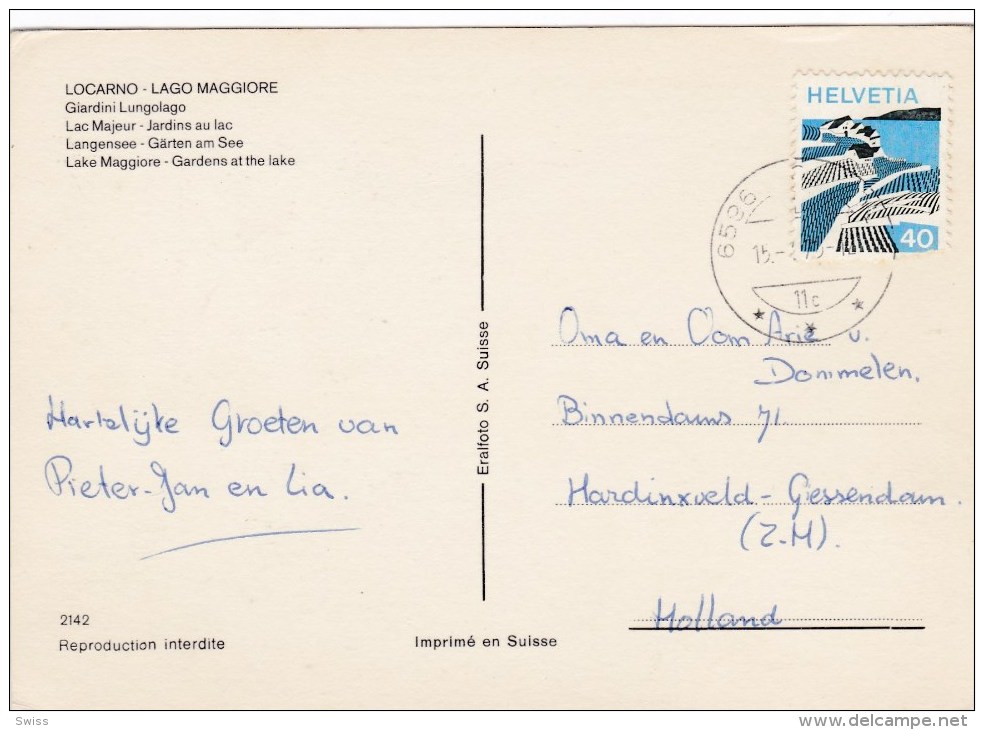 LOCARNO - LAGO MAGGIORE
Giardini Lungolago
Lac Majeur - Jardins au lac
Langensee - Gärten am See
Lake Maggiore - Gardens at the lake
HELVETIA
40
6596
15.-
11c
Eralfoto S. A. Suisse
Oma en Oom Arie v.
Dommelen.
Binnendams 71.
Hardinxveld - Giessendam.
(Z-H).
Holland
Hartelijke Groeten van
Pieter-Jan en Lia.
2142
Reproduction interdite
Imprimé en Suisse
Swiss
delcampe.net